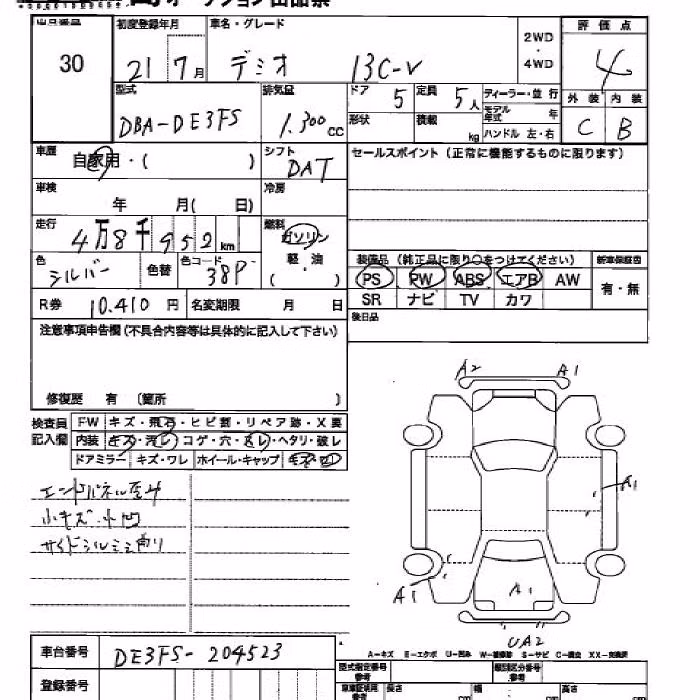 オークション出品票
出品番号 初度登録年月 車名・グレード 2WD・4WD 評価点
30 21 7月 デミオ 13C-V 4
型式 排気量 ドア 5 定員 5人 ディーラー・並行 外装 内装
DBA-DE3FS 1.300cc 形状 積載 kg モデル年式 年 ハンドル 左・右 C B
車歴 自家用・( ) シフト DAT セールスポイント(正常に機能するものに限ります)
車検 年 月( 日) 冷房
走行 4万8千952km 燃料 ガソリン
軽・油
( )
色 シルバー 色替 色コード 38P 装備品(純正品に限り○をつけてください) 新車保証書
PS PW ABS エアB AW 有・無
R券 10.410円 名変期限 月 日 SR ナビ TV カワ
注意事項申告欄(不具合内容等は具体的に記入して下さい) 後日品
修復歴 有 〔箇所 〕
検査員記入欄 FW キズ・飛石・ヒビ割・リペア跡・X要
内装 キズ・汚レ・コゲ・穴・スレ・ヘタリ・破レ
ドアミラー キズ・ワレ ホイール・キャップ キズ
エンドパネル歪み
小キズ・小凹
サイドシル 曲り
A2 A1
A1
A1 A1
UA2
A-キズ E-エクボ U-凹み W-補修跡 S-サビ C-腐蝕 XX-交換済
車台番号 DE3FS-204523
登録番号
型式指定番号 参考 類別区分番号 参考
長さ cm 幅 cm 高さ cm